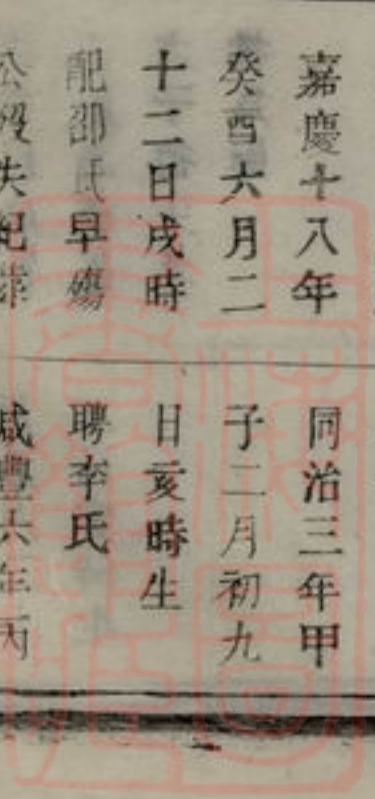 嘉慶十八年
癸酉六月二
十二日戌時
配邵氏早殤
公歿失紀葬
同治三年甲
子二月初九
日亥時生
聘李氏
咸豐六年丙